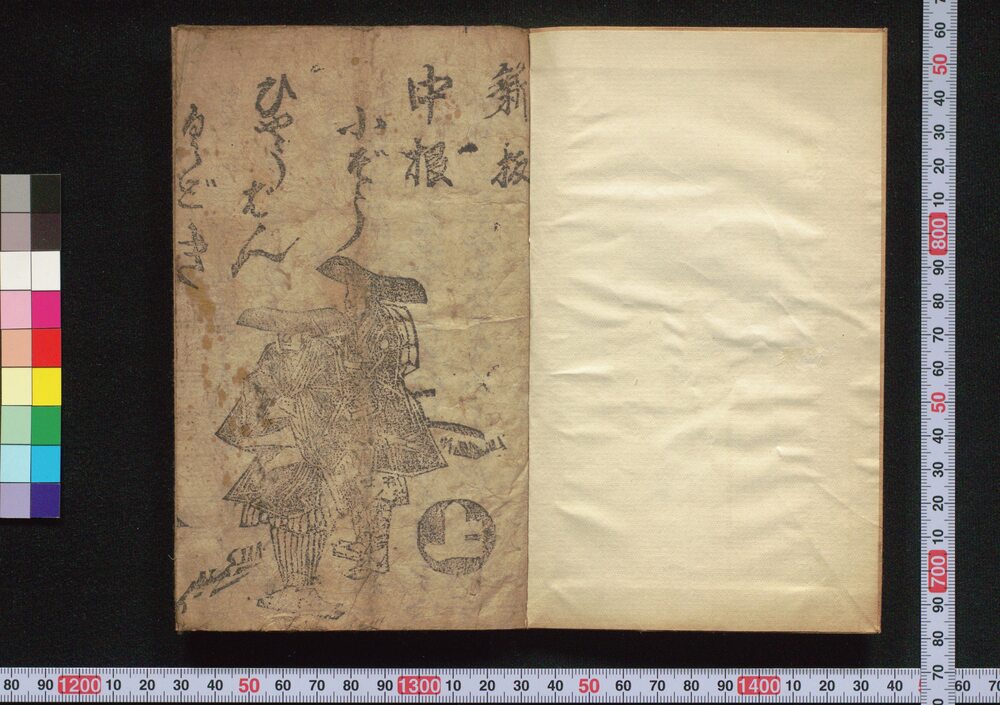 新板
中根
小ぞう
ひやうばん
くどき
上
80 90 1200 10 20 30 40 50 60 70 80 90 1300 10 20 30 40 50 60 70 80 90 1400 10 20 30 40 60 70
60 50 40 30 20 10 800 90 80 70 60 50 40 30 20 10 700 90 80 70